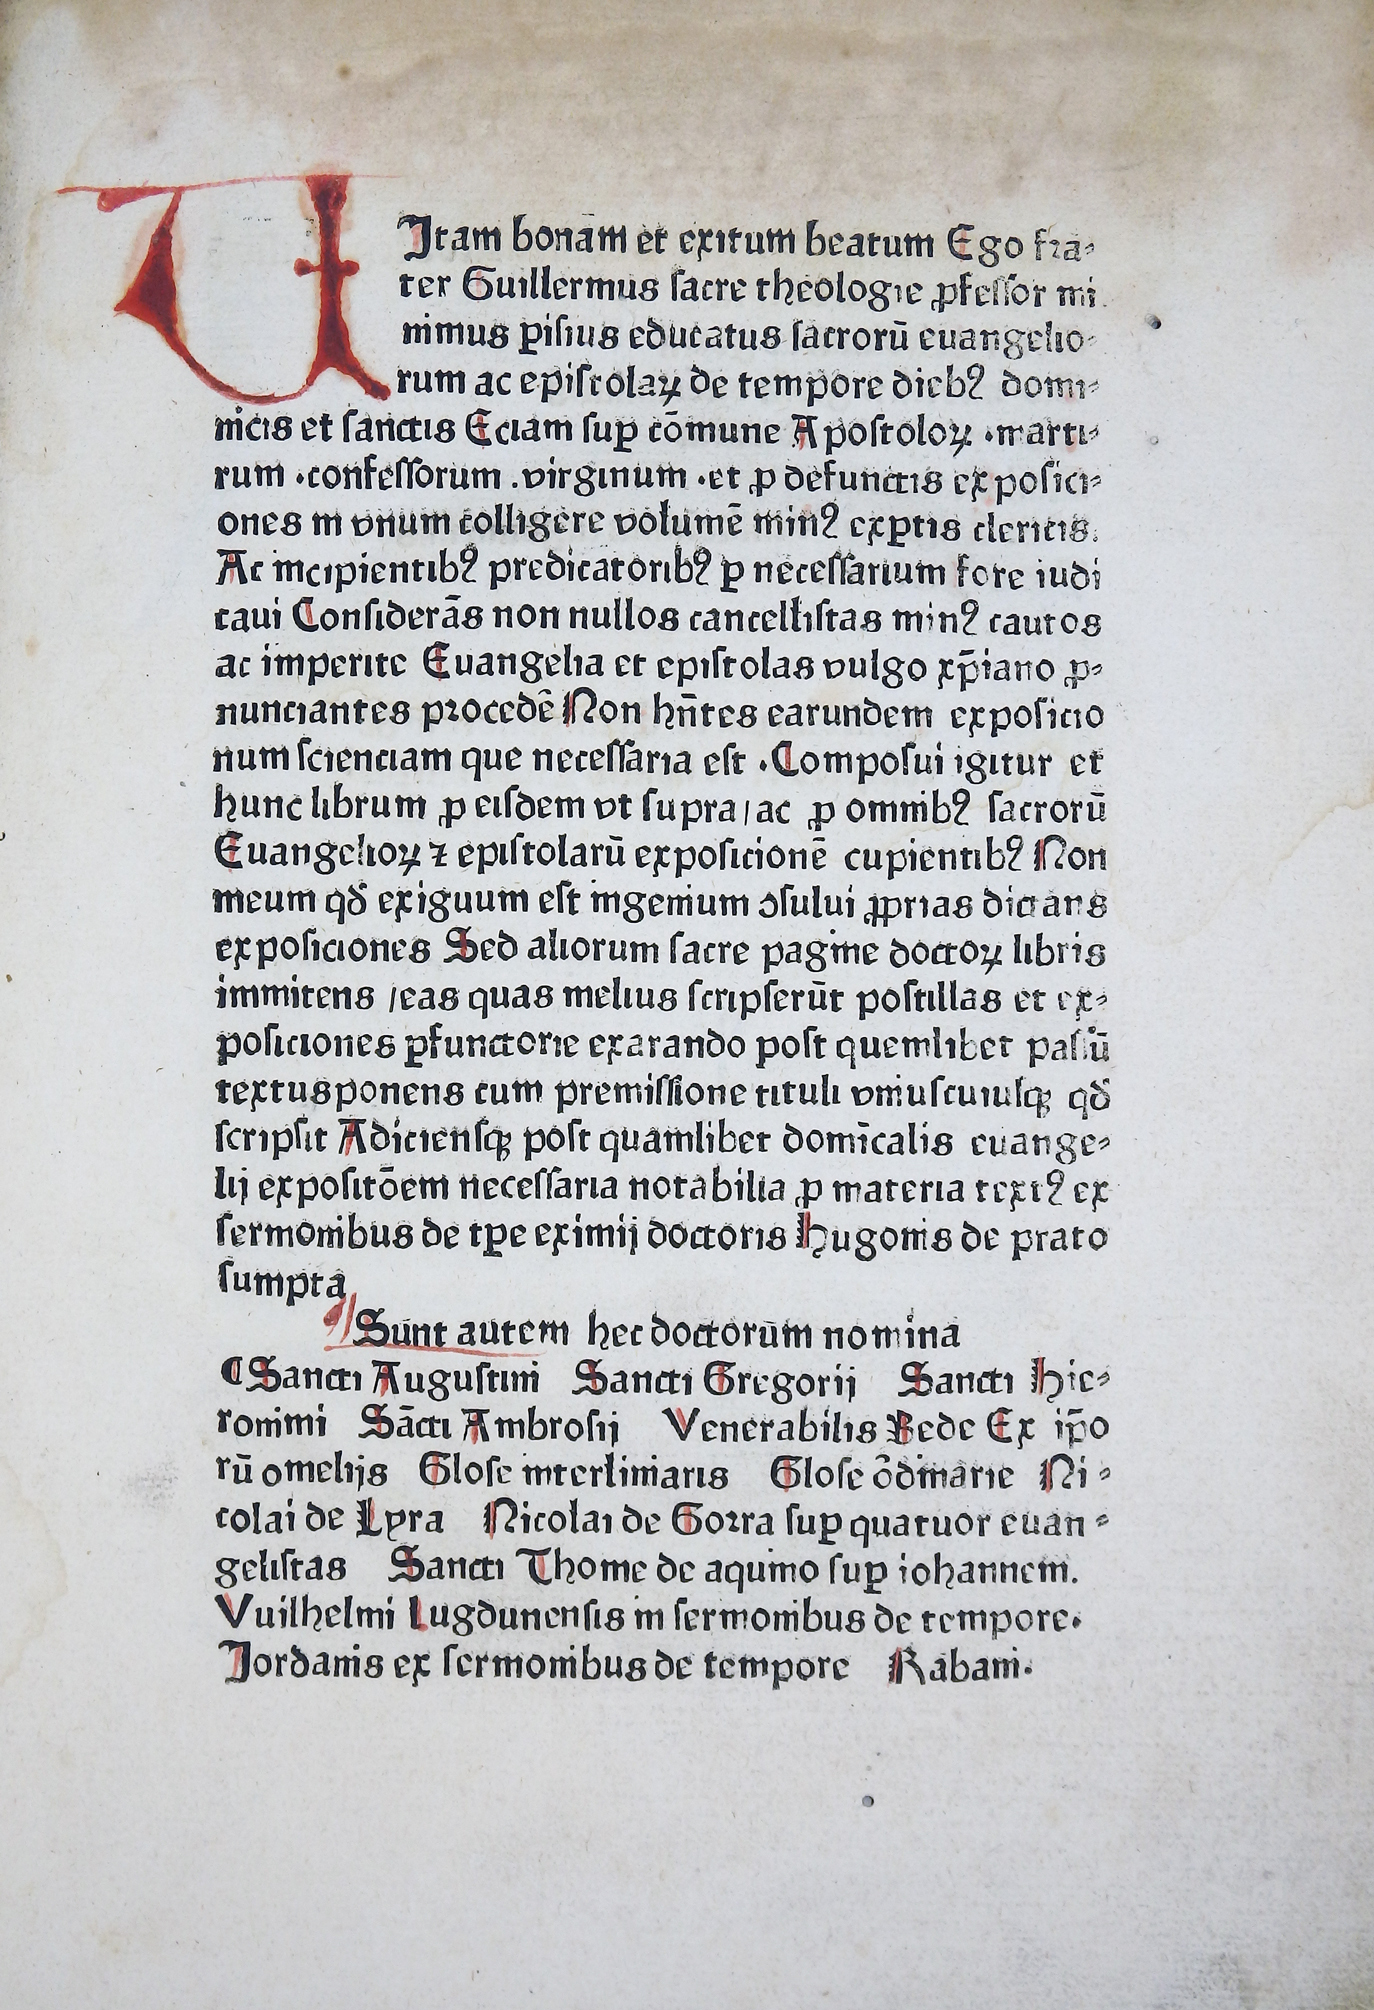 VItam bonam et exitum beatum Ego fra⸗
ter Guillermus sacre theologie ꝓfessor mi
nimus ꝑisius educatus sacrorū euangelio⸗
rum ac epistolaꝝ de tempore diebꝰ domi⸗
nicis et sanctis Eciam suꝑ cōmune Apostoloꝝ .marti⸗
rum .confessorum .virginum .et ꝓ defunctis exposici⸗
ones in vnum colligere volumē minꝰ exꝑtis clericis.
Ac incipientibꝰ predicatoribꝰ ꝑ necessarium fore iudi
caui Considerās non nullos cancellistas minꝰ cautos
ac imperite Euangelia et epistolas vulgo xp̄iano ꝓ⸗
nunciantes procedē Non hn̄tes earundem exposicio
num scienciam que necessaria est .Composui igitur et
hunc librum ꝓ eisdem vt supra/ac ꝓ omnibꝰ sacrorū
Euangelioꝝ ⁊ epistolarū exposicionē cupientibꝰ Non
meum qd̓ exiguum est ingenium ꝯsului ꝓprias dictans
exposiciones Sed aliorum sacre pagine doctoꝝ libris
immitens /eas quas melius scripserūt postillas et ex⸗
posiciones ꝑfunctorie exarando post quemlibet passū
textusponens cum premissione tituli vniuscuiusqꝫ qd̓
scripsit Adiciensqꝫ post quamlibet domīcalis euange⸗
lij expositōem necessaria notabilia ꝓ materia textꝰ ex
sermonibus de tꝑe eximij doctoris Hugonis de prato
sumpta
¶ Sunt autem hec doctorum nomina
¶Sancti Augustini Sancti Gregorij Sancti Hie⸗
ronimi Sācti Ambrosij Venerabilis Bede Ex ip̄o
rū omelijs Glose interliniaris Glose ōdinarie Ni⸗
colai de Lyra Nicolai de Gorra suꝑ quatuor euan⸗
gelistas Sancti Thome de aquino suꝑ iohannem.
Vuilhelmi Lugdunensis in sermonibus de tempore.
Jordanis ex sermonibus de tempore Rabani.